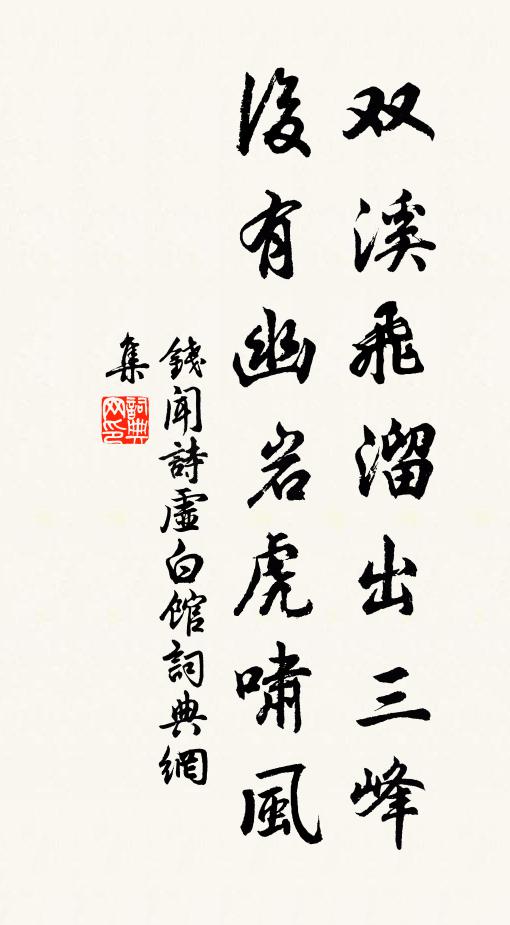 双溪飛溜出三峰
後有幽岩虎嘯風
錢聞詩虛白館詞典網
集
詞典网印